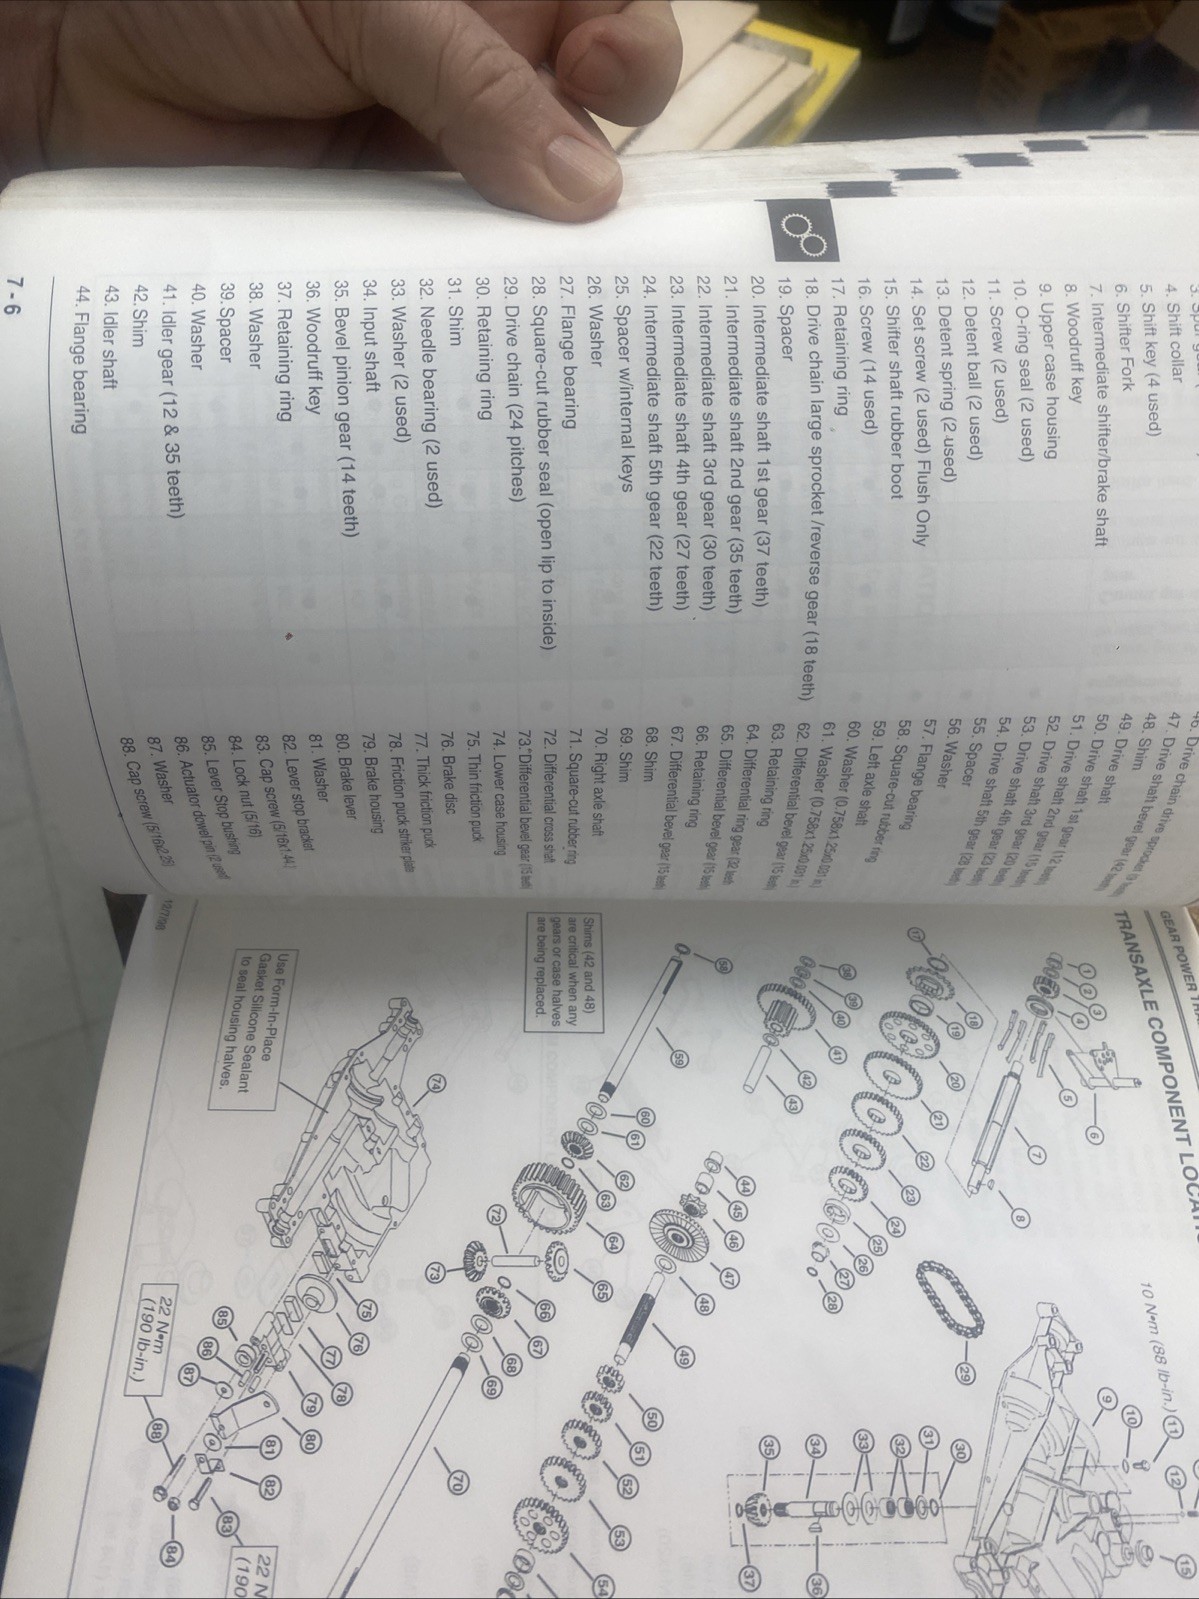 4. Shift collar
5. Shift key (4 used)
6. Shifter Fork
7. Intermediate shifter/brake shaft
8. Woodruff key
9. Upper case housing
10. O-ring seal (2 used)
11. Screw (2 used)
12. Detent ball (2 used)
13. Detent spring (2 used)
14. Set screw (2 used) Flush Only
15. Shifter shaft rubber boot
16. Screw (14 used)
17. Retaining ring
18. Drive chain large sprocket /reverse gear (18 teeth)
19. Spacer
20. Intermediate shaft 1st gear (37 teeth)
21. Intermediate shaft 2nd gear (35 teeth)
22. Intermediate shaft 3rd gear (30 teeth)
23. Intermediate shaft 4th gear (27 teeth)
24. Intermediate shaft 5th gear (22 teeth)
25. Spacer w/internal keys
26. Washer
27. Flange bearing
28. Square-cut rubber seal (open lip to inside)
29. Drive chain (24 pitches)
30. Retaining ring
31. Shim
32. Needle bearing (2 used)
33. Washer (2 used)
34. Input shaft
35. Bevel pinion gear (14 teeth)
36. Woodruff key
37. Retaining ring
38. Washer
39. Spacer
40. Washer
41. Idler gear (12 & 35 teeth)
42. Shim
43. Idler shaft
44. Flange bearing
46. Drive chain drive sprocket
47. Drive shaft bevel gear (42
48. Shim
49. Drive shaft
50. Drive shaft 1st gear (12
51. Drive shaft 2nd gear (15
52. Drive shaft 3rd gear (20
53. Drive shaft 4th gear (23
54. Drive shaft 5th gear (28
55. Spacer
56. Washer
57. Flange bearing
58. Square-cut rubber ring
59. Left axle shaft
60. Washer
61. Washer
62. Differential bevel gear (15
63. Retaining ring
64. Differential ring gear (32
65. Differential bevel gear (15
66. Retaining ring
67. Differential bevel gear (15
68. Shim
69. Shim
70. Right axle shaft
71. Square-cut rubber ring
72. Differential cross shaft
73. Differential bevel gear (15
74. Lower case housing
75. Thin friction puck
76. Brake disc
77. Thick friction puck
78. Friction puck striker plate
79. Brake housing
80. Brake lever
81. Washer
82. Lever stop bracket
83. Cap screw (5/16x1.44)
84. Lock nut (5/16)
85. Lever Stop bushing
86. Actuator dowel pin (2 used)
87. Washer
88. Cap screw (5/16x2.25)
7 - 6
GEAR POWER
TRANSAXLE COMPONENT
10 N•m (88 lb-in.)
1
2
3
4
5
6
7
8
9
10
11
12
15
17
18
19
20
21
22
23
24
25
26
27
28
29
30
31
32
33
34
35
36
37
38
39
40
41
42
43
44
45
46
47
48
49
50
51
52
53
54
58
59
60
61
62
63
64
65
66
67
68
69
70
72
73
74
75
76
77
78
79
80
81
82
83
84
85
86
87
88
Shims (42 and 48)
are critical when any
gears or case halves
are being replaced.
Use Form-In-Place
Gasket Silicone Sealant
to seal housing halves.
22 N•m
(190 lb-in.)
22 N
(190
12/7/98